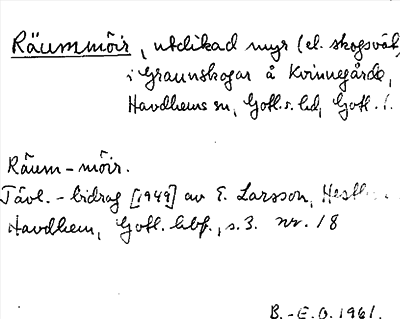 Räummöir, utdikad myr (el. skogsvät,
i Graunskogar å Kvinnegårde,
Havdhems sn, Gotl. s. hd, Gotl. l.
Räum-möir.
Tävl.-bidrag [1949] av E. Larsson,
Havdhem, Gotl. hbf., s. 3. nr. 18
B.-E.O. 1961.